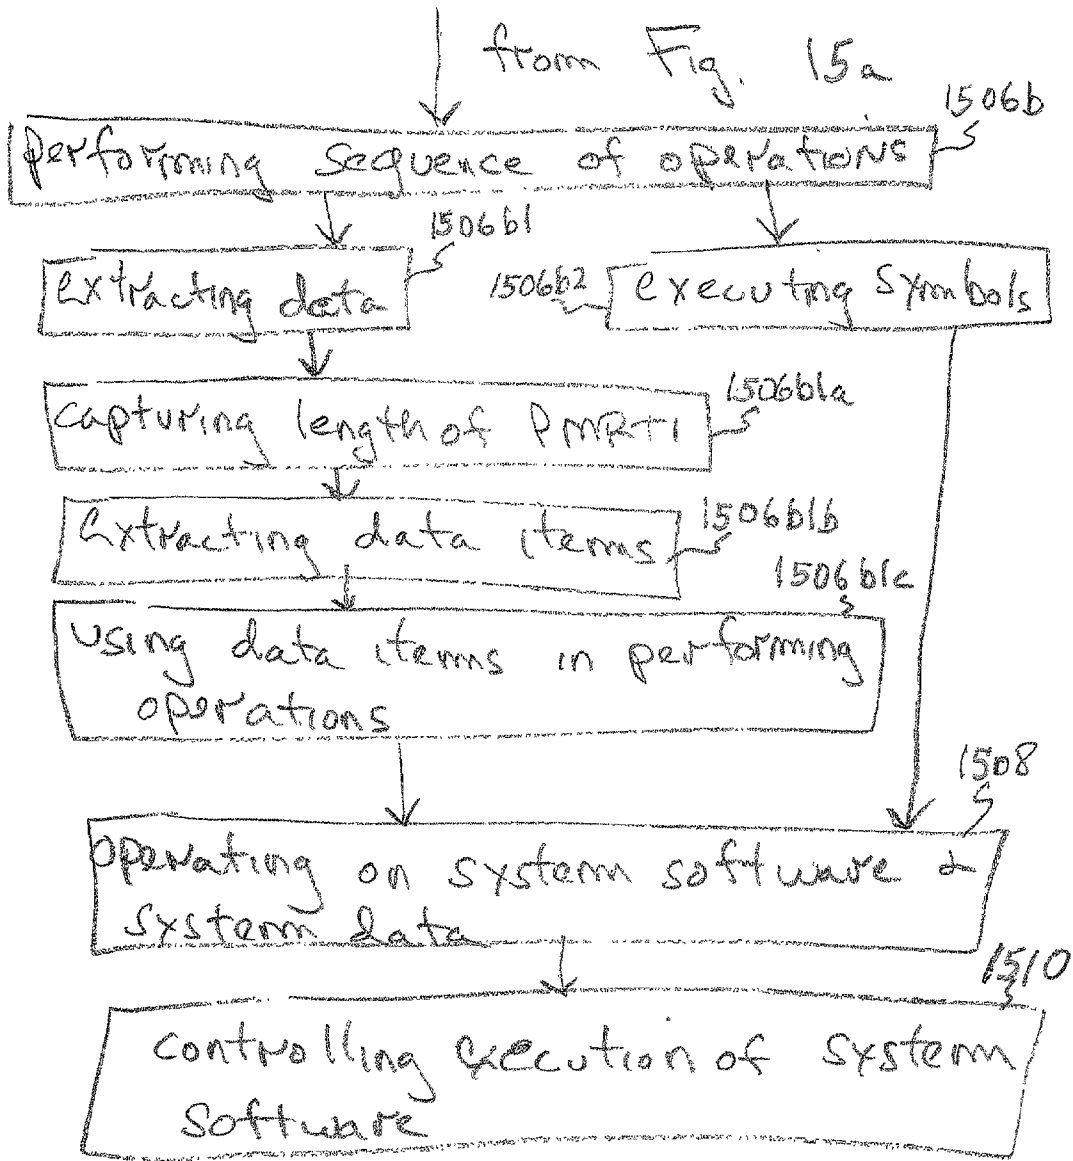 from Fig. 15a
1506b
performing sequence of operations
1506b1
extracting data
1506b2
executing symbols
1506b1a
capturing length of PMRTI
1506b1b
extracting data items
1506b1c
using data items in performing
operations
1508
operating on system software &
system data
1510
controlling execution of system
software